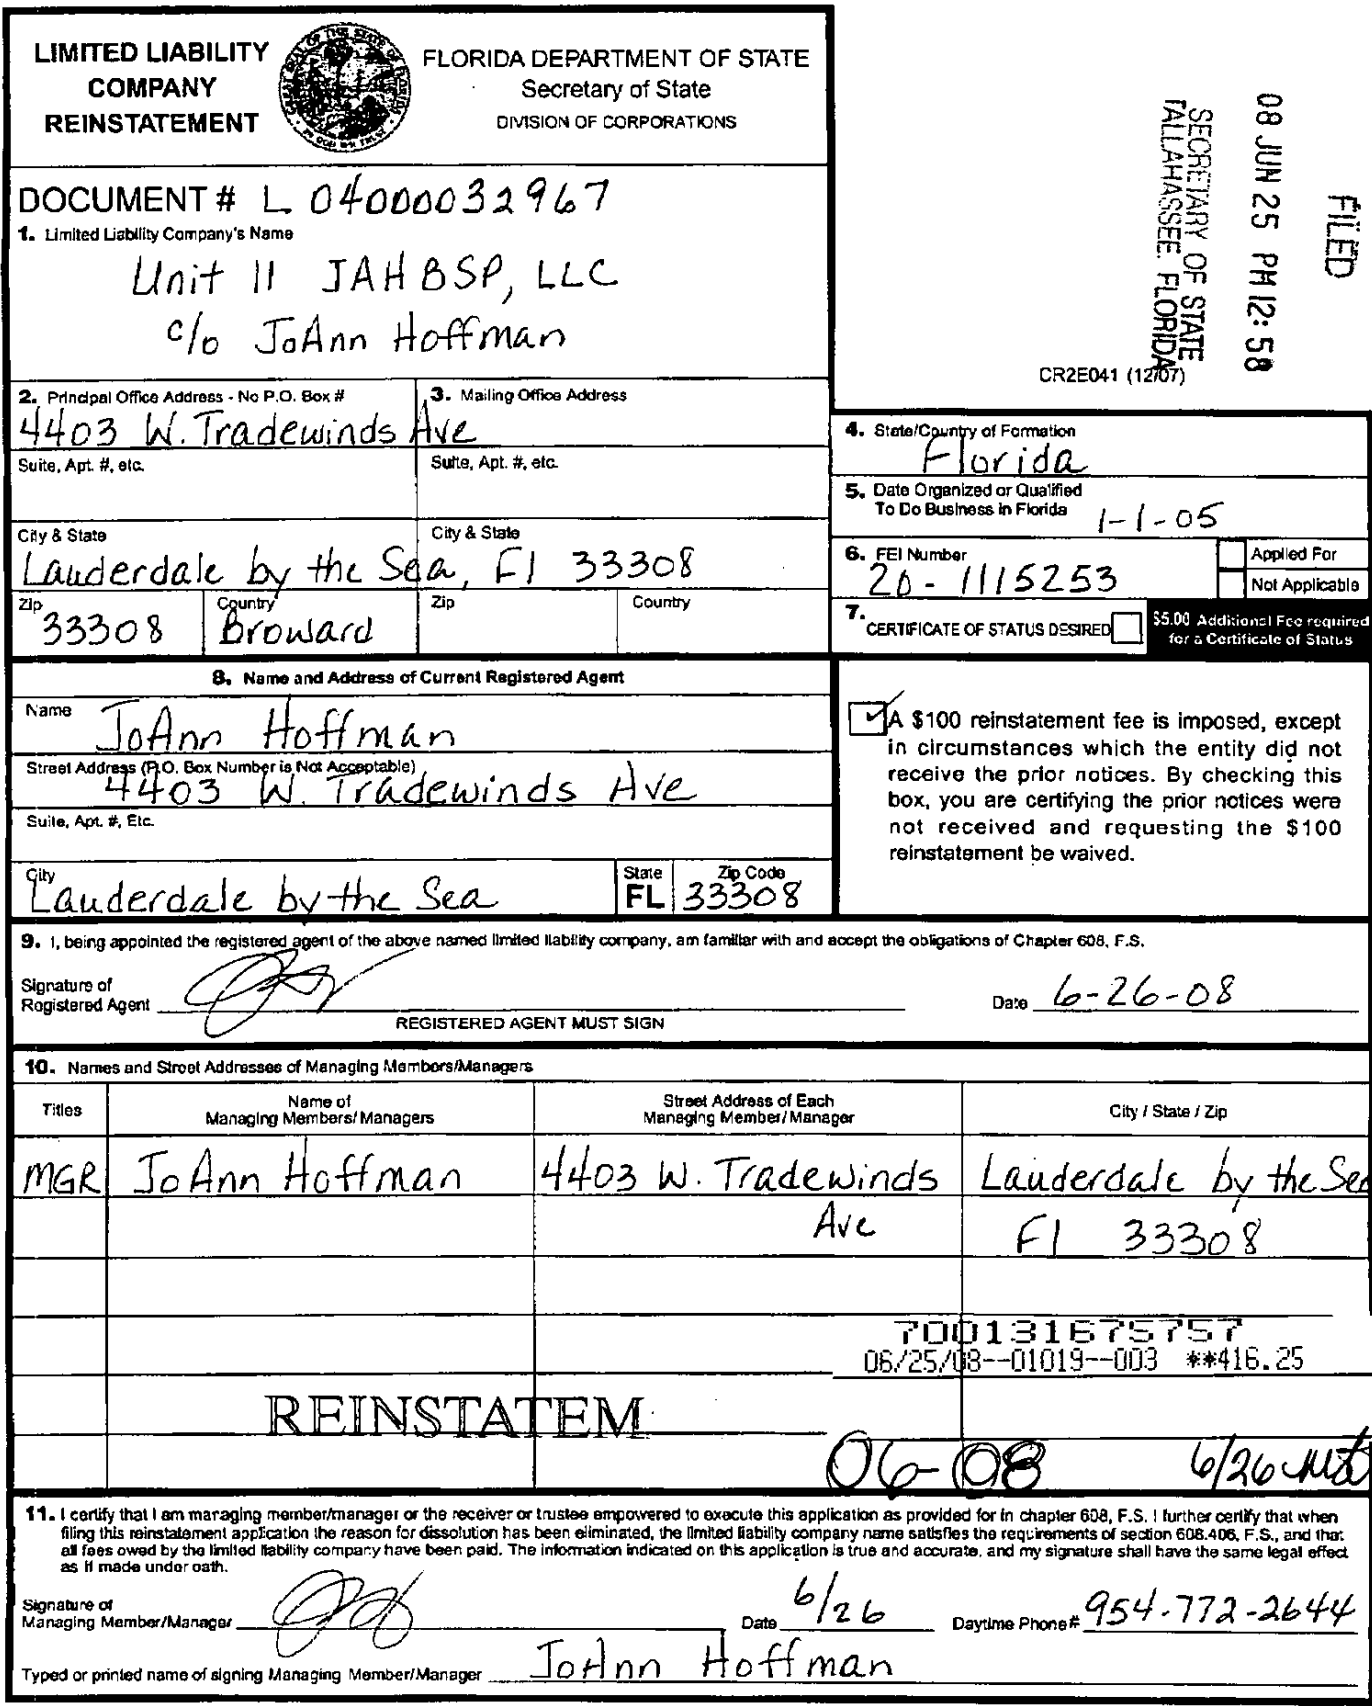 LIMITED LIABILITY
COMPANY
REINSTATEMENT
FLORIDA DEPARTMENT OF STATE
Secretary of State
DIVISION OF CORPORATIONS
FILED
08 JUN 25 PM 12:58
SECRETARY OF STATE
TALLAHASSEE, FLORIDA
DOCUMENT # L 04000032967
1. Limited Liability Company's Name
Unit 11 JAHBSP, LLC
c/o JoAnn Hoffman
CR2E041 (12/07)
2. Principal Office Address - No P.O. Box #
3. Mailing Office Address
4403 W. Tradewinds Ave
Suite, Apt. #, etc.
Suite, Apt. #, etc.
City & State
City & State
Lauderdale by the Sea, Fl 33308
Zip
Country
Zip
Country
33308
Broward
4. State/Country of Formation
Florida
5. Date Organized or Qualified
To Do Business in Florida
1-1-05
6. FEI Number
20-1115253
Applied For
Not Applicable
7. CERTIFICATE OF STATUS DESIRED
$5.00 Additional Fee required
for a Certificate of Status
8. Name and Address of Current Registered Agent
Name
JoAnn Hoffman
Street Address (P.O. Box Number is Not Acceptable)
4403 W. Tradewinds Ave
Suite, Apt. #, Etc.
City
State
Zip Code
Lauderdale by the Sea
FL
33308
A $100 reinstatement fee is imposed, except
in circumstances which the entity did not
receive the prior notices. By checking this
box, you are certifying the prior notices were
not received and requesting the $100
reinstatement be waived.
9. I, being appointed the registered agent of the above named limited liability company, am familiar with and accept the obligations of Chapter 608, F.S.
Signature of
Registered Agent
Date 6-26-08
REGISTERED AGENT MUST SIGN
10. Names and Street Addresses of Managing Members/Managers
Titles
Name of
Managing Members/Managers
Street Address of Each
Managing Member/Manager
City / State / Zip
MGR
JoAnn Hoffman
4403 W. Tradewinds
Ave
Lauderdale by the Sea
Fl 33308
700131675757
06/25/08--01019--003 **416.25
REINSTATEM
06-08
6/26
11. I certify that I am managing member/manager or the receiver or trustee empowered to execute this application as provided for in chapter 608, F.S. I further certify that when
filing this reinstatement application the reason for dissolution has been eliminated, the limited liability company name satisfies the requirements of section 608.406, F.S., and that
all fees owed by the limited liability company have been paid. The information indicated on this application is true and accurate, and my signature shall have the same legal effect
as if made under oath.
Signature of
Managing Member/Manager
Date 6/26
Daytime Phone # 954-772-2644
Typed or printed name of signing Managing Member/Manager JoAnn Hoffman